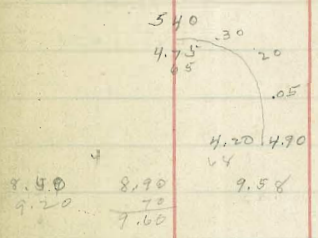 540
.30
4.75 20
65
.05
4.20 4.90
68
8.90 9.58
9.20 70
9.60